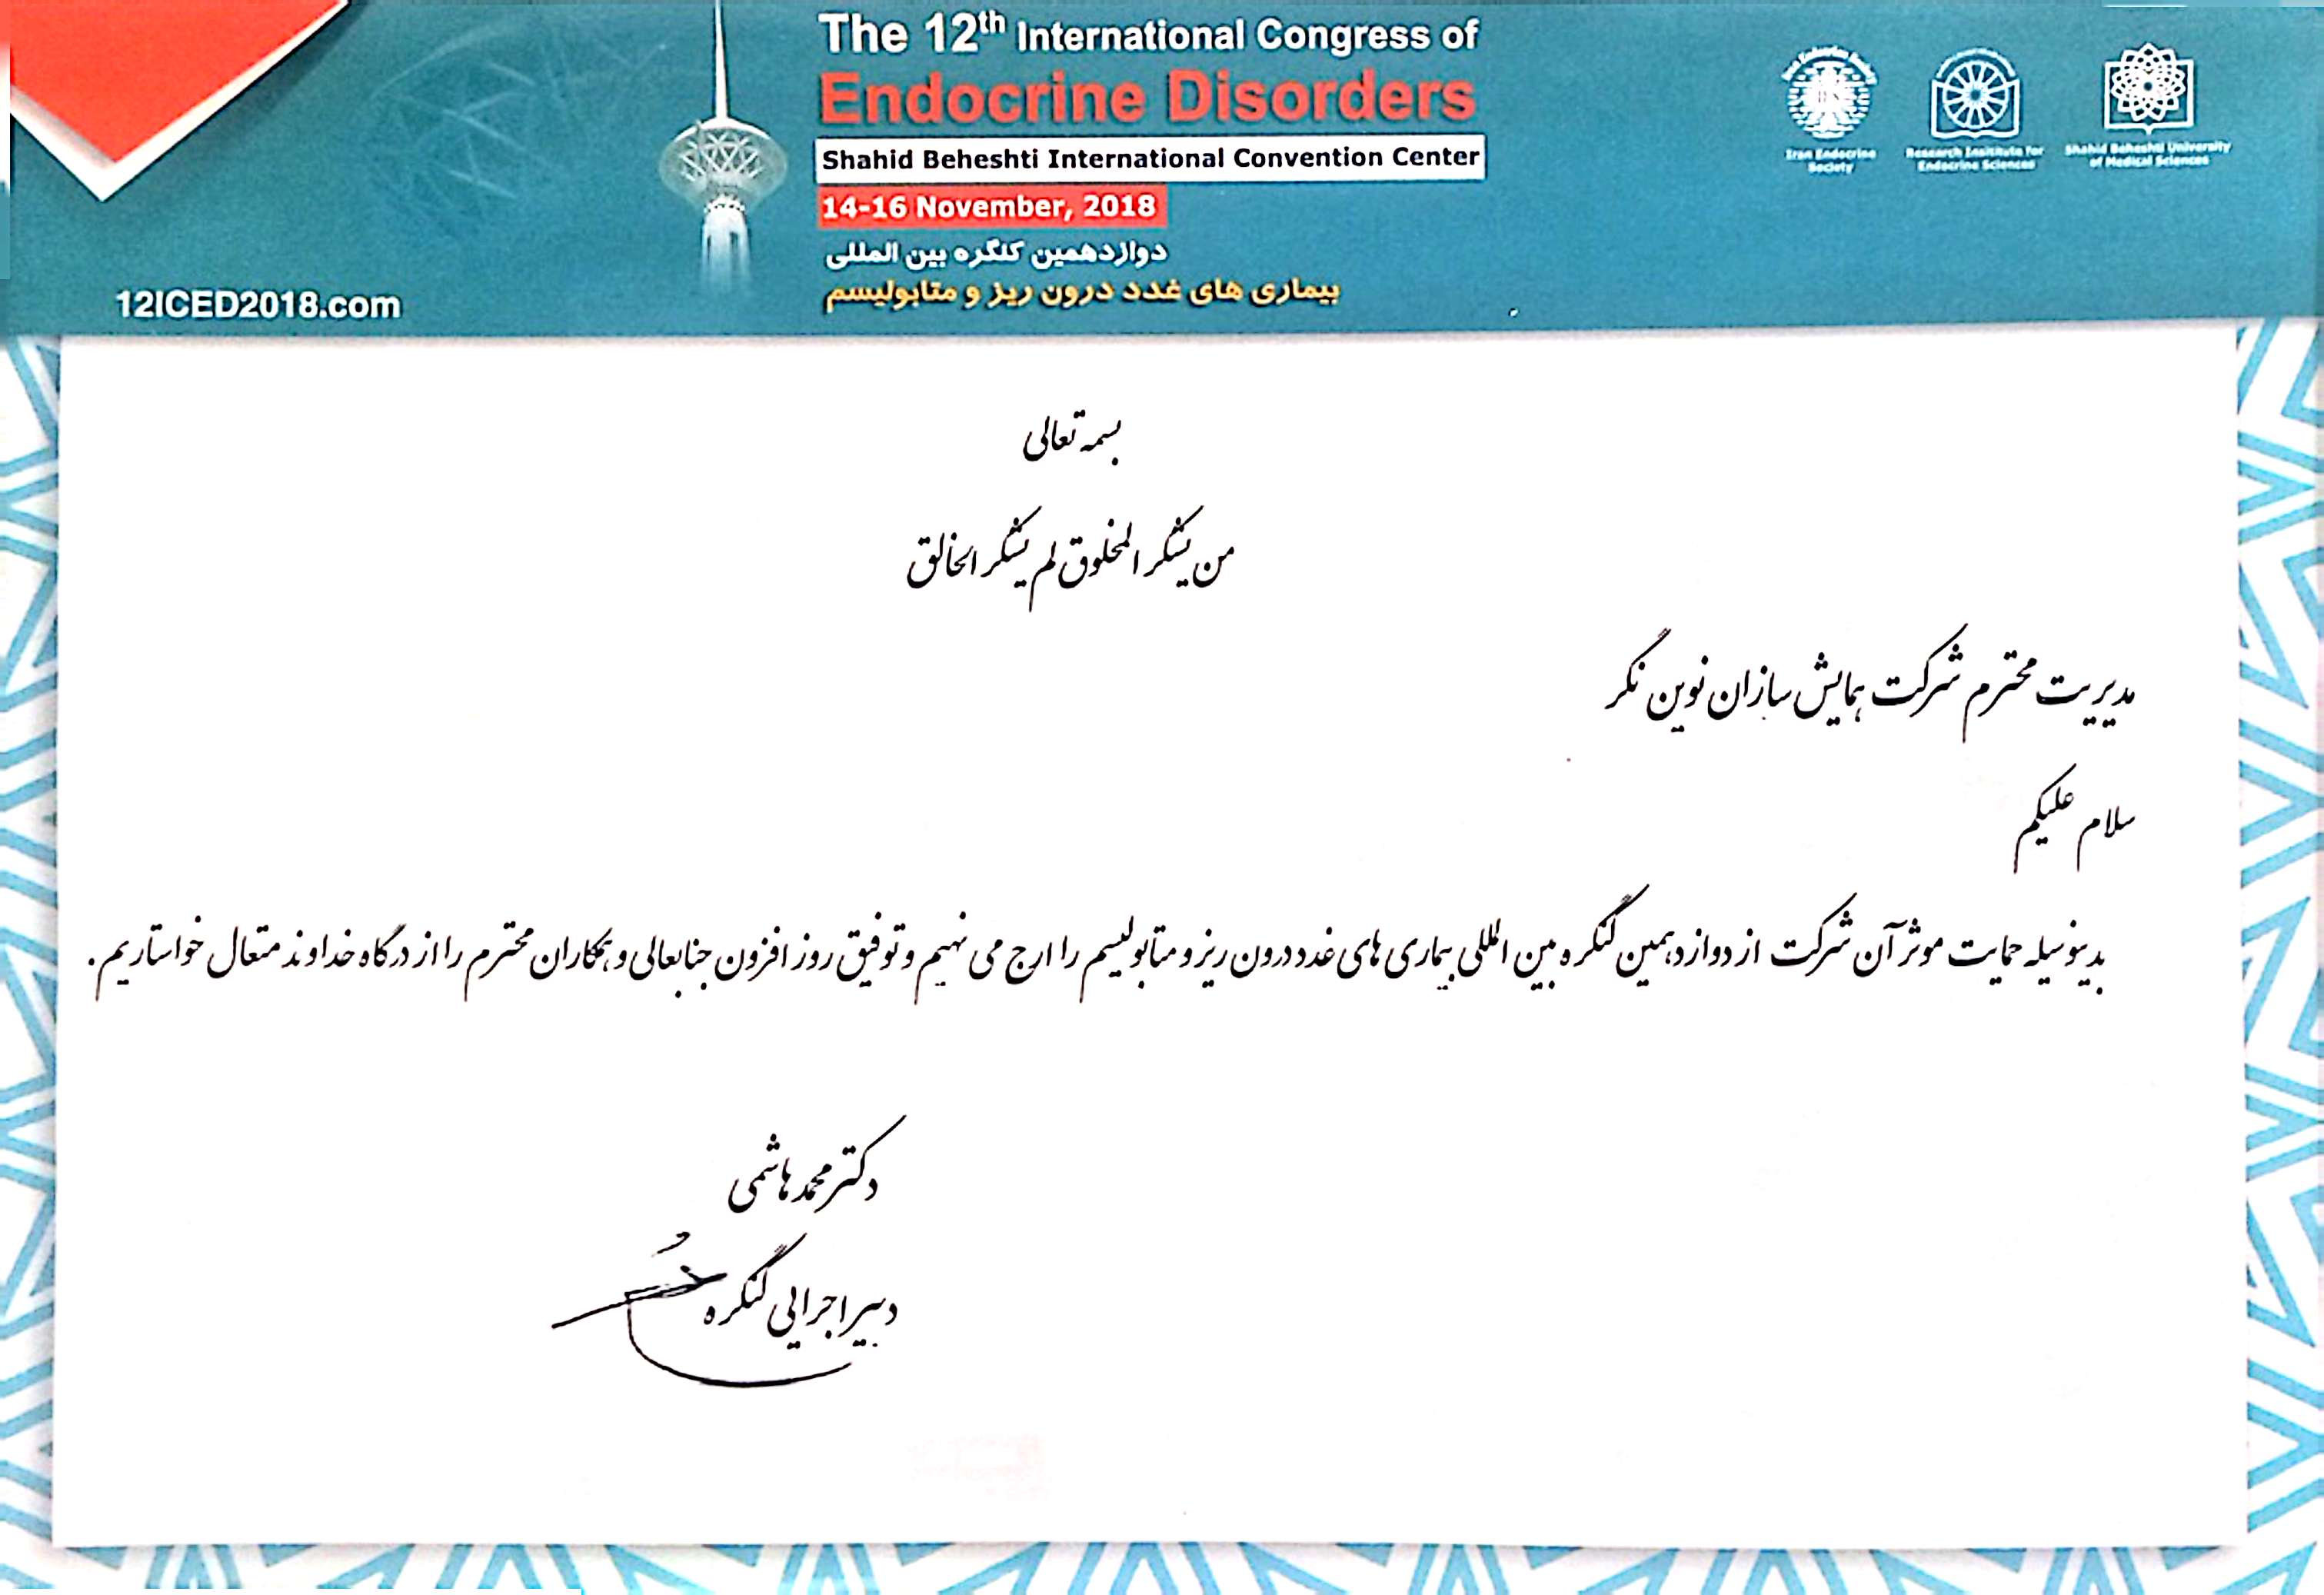 The 12th International Congress of
Endocrine Disorders
Shahid Beheshti International Convention Center
14-16 November, 2018
دوازدهمین کنگره بین المللی
بیماری های غدد درون ریز و متابولیسم
12ICED2018.com
Iran Endocrine
Society
Research Institute for
Endocrine Sciences
Shahid Beheshti University
of Medical Sciences
بسمه تعالی
من یشکر المخلوق لم یشکر الخالق
مدیریت محترم شرکت همایش سازان نوین نگر
سلام علیکم
بدینوسیله حمایت موثر آن شرکت از دوازدهمین کنگره بین المللی بیماری های غدد درون ریز و متابولیسم را ارج می نهیم و توفیق روز افزون جنابعالی و همکاران محترم را از درگاه خداوند متعال خواستاریم.
دکتر محمد هاشمی
دبیر اجرایی کنگره